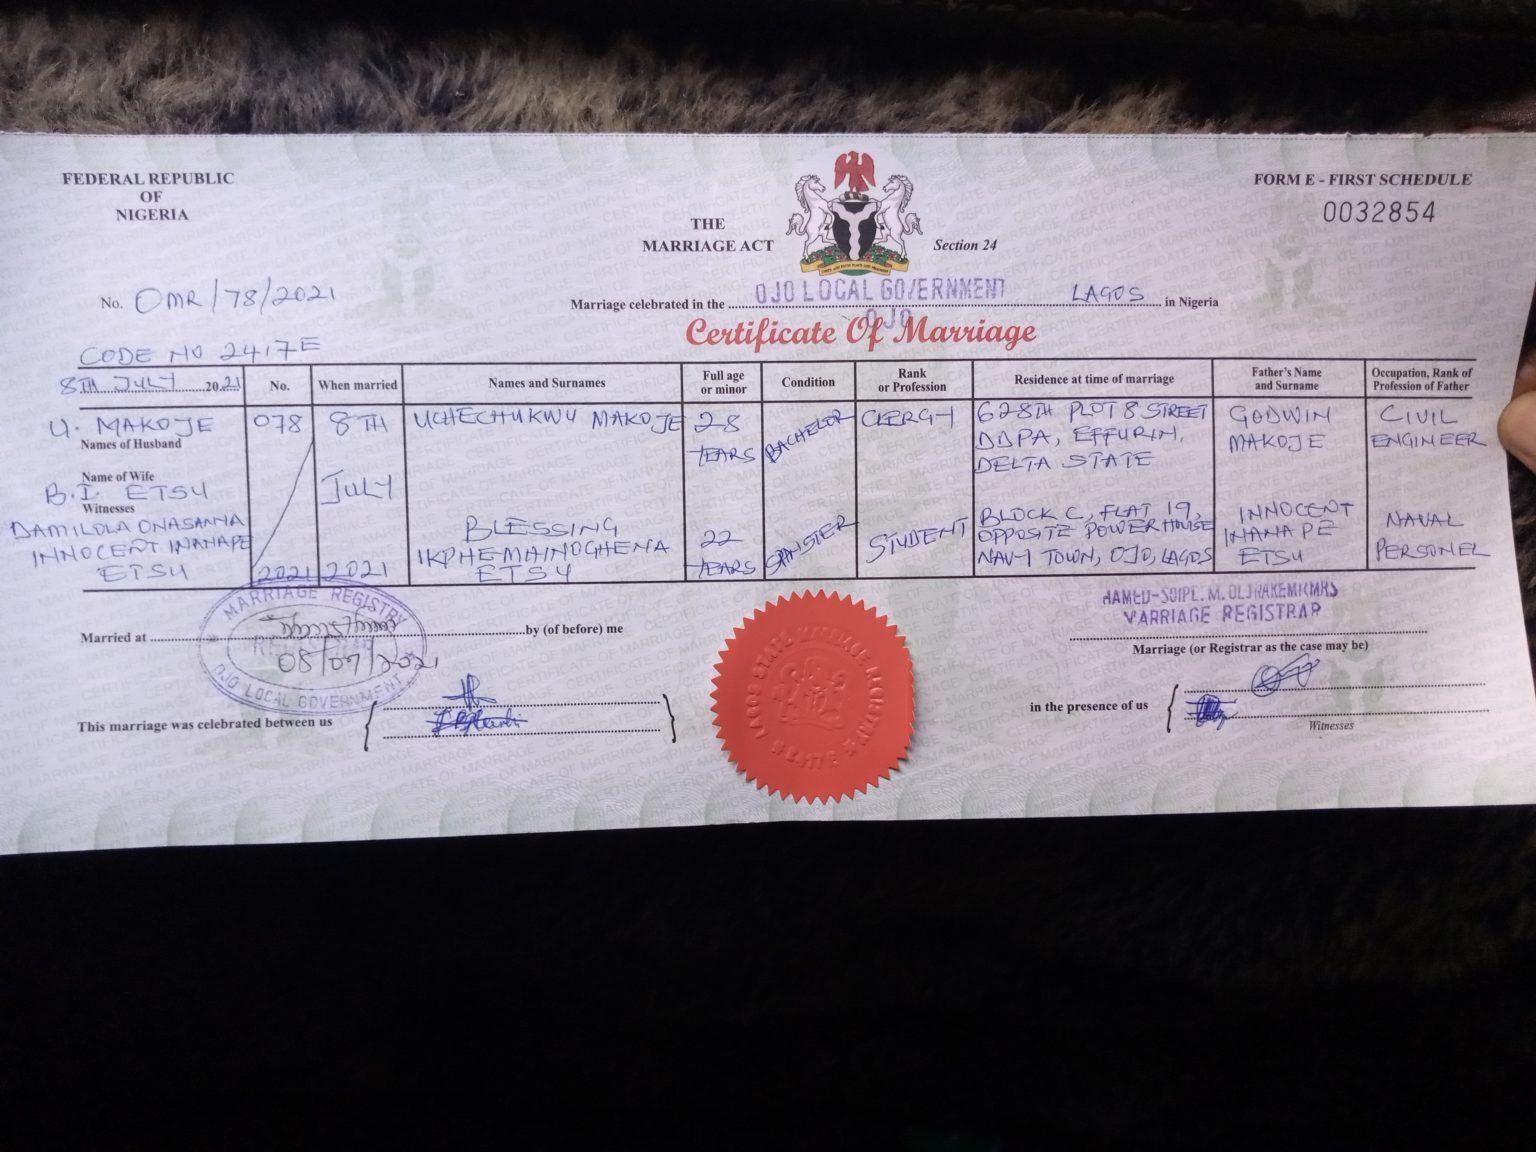 FEDERAL REPUBLIC
OF
NIGERIA
FORM E - FIRST SCHEDULE
0032854
THE
MARRIAGE ACT
Section 24
No. OMR/78/2021
Marriage celebrated in the OJO LOCAL GOVERNMENT LAGOS in Nigeria
OJO
Certificate Of Marriage
CODE NO 2417E
8TH JULY 2021
No.
When married
Names and Surnames
Full age
or minor
Condition
Rank
or Profession
Residence at time of marriage
Father's Name
and Surname
Occupation, Rank of
Profession of Father
U. MAKOJE
Names of Husband
078
8TH
UCHECHUKWU MAKOJE
28
YEARS
BACHELOR
CLERGY
628TH PLOT 8 STREET
DDPA, EFFURUN,
DELTA STATE
GODWIN
MAKOJE
CIVIL
ENGINEER
Name of Wife
B.I. ETSU
Witnesses
DAMILOLA ONASANYA
INNOCENT INANAPE
ETSU
2021
JULY
2021
BLESSING
IKPHEMHINOGHENA
ETSU
22
YEARS
SPINSTER
STUDENT
BLOCK C, FLAT 19,
OPPOSITE POWER HOUSE
NAVY TOWN, OJO, LAGOS
INNOCENT
INANAPE
ETSU
NAVAL
PERSONEL
MARRIAGE REGISTRY
REGISTRAR
08/07/2021
OJO LOCAL GOVERNMENT
Married at by (of before) me
MARRIAGE REGISTRAR
Marriage (or Registrar as the case may be)
This marriage was celebrated between us
LAGOS STATE MARRIAGE REGISTRY
in the presence of us
Witnesses